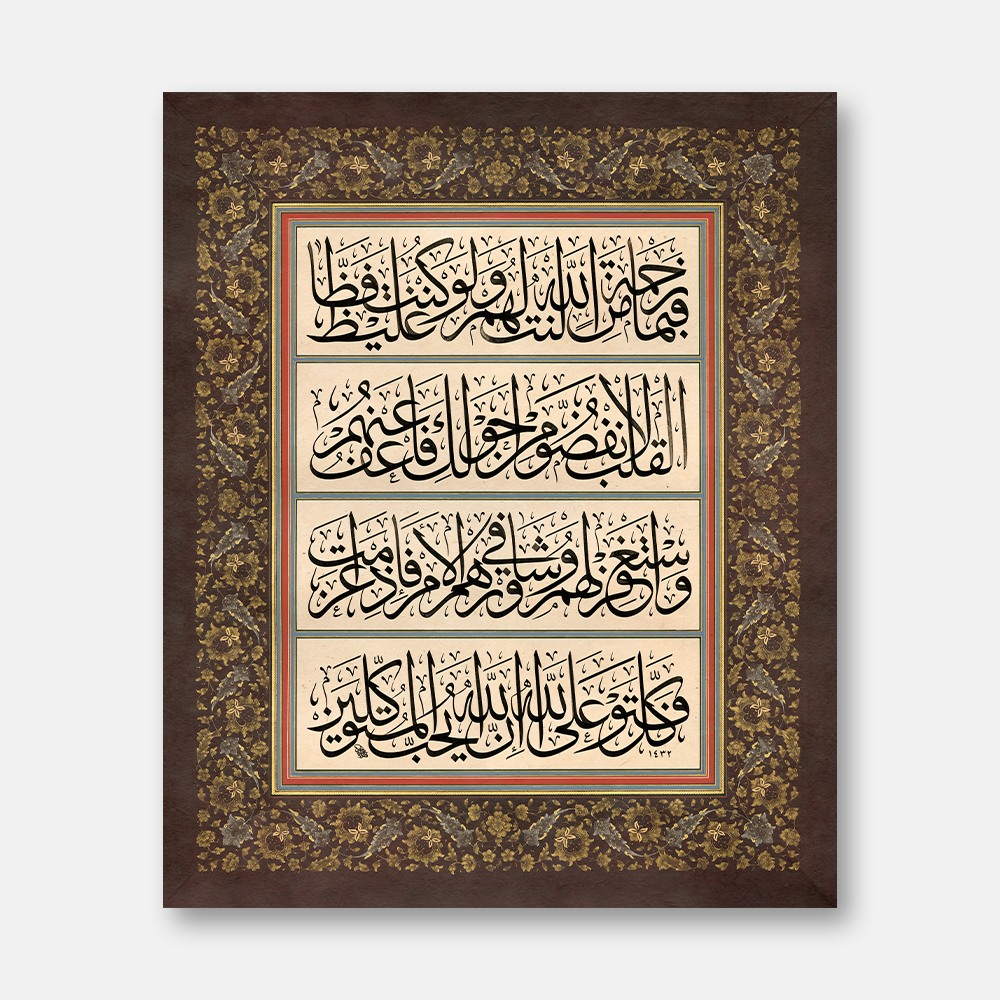 فَبِمَا رَحْمَةٍ مِنَ اللَّهِ لِنْتَ لَهُمْ وَلَوْ كُنْتَ فَظًّا غَلِيظَ
الْقَلْبِ لَانْفَضُّوا مِنْ حَوْلِكَ فَاعْفُ عَنْهُمْ
وَاسْتَغْفِرْ لَهُمْ وَشَاوِرْهُمْ فِي الْأَمْرِ فَإِذَا عَزَمْتَ
فَتَوَكَّلْ عَلَى اللَّهِ إِنَّ اللَّهَ يُحِبُّ الْمُتَوَكِّلِينَ
١٤٣٢